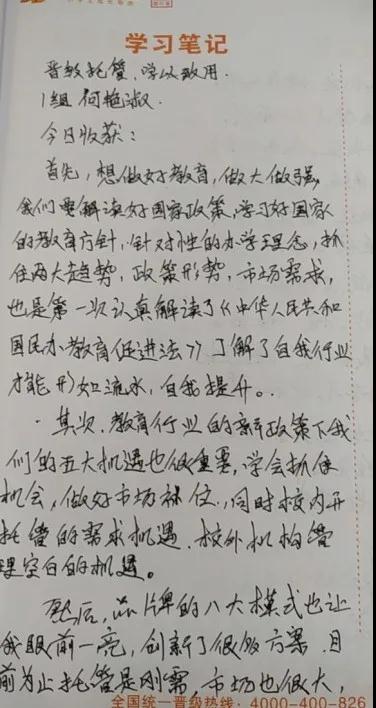 学习笔记
晋级托管,学以致用.
1组 何艳淑.
今日收获:
首先,想做好教育,做大做强,
我们要解读好国家政策,学习好国家
的教育方针,针对性的办学理念,抓
住两大趋势,政策形势,市场需求,
也是第一次认真解读了《中华人民共和
国民办教育促进法》了解了自我行业
才能行如流水,自我提升。
·其次,教育行业的新政策下我
们的五大机遇也很重要,学会抓住
机会,做好市场补位,同时校内开
托管的需求机遇,校外机构管
理空白的机遇。
然后,品牌的八大模式也让
我眼前一亮,创新了很多方案,目
前为止托管是刚需,市场也很大,
全国统一晋级热线:4000-400-826